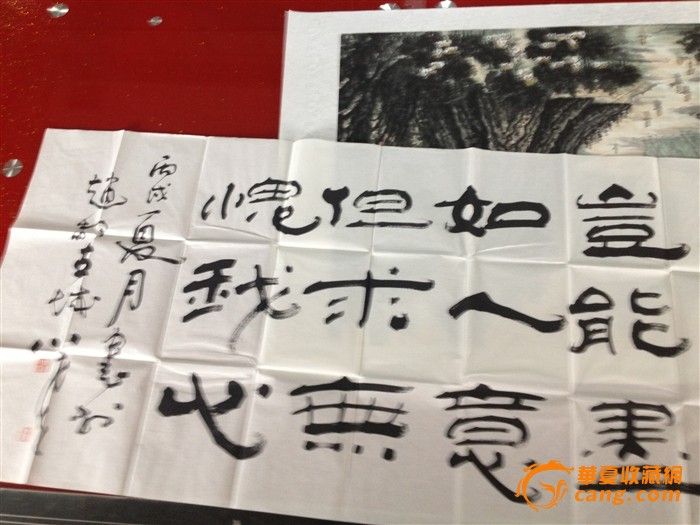 豈能盡
如人意
但求無
愧我心
丙戌夏月
古城
華夏收藏網
cang.com